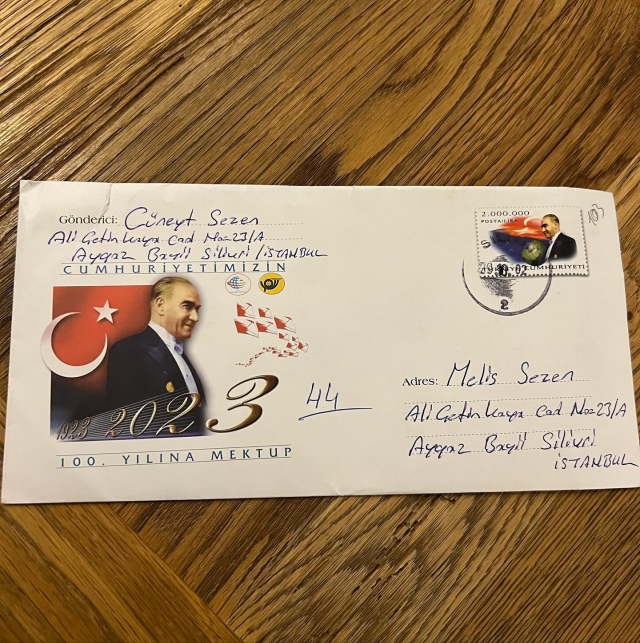 Gönderici: Cüneyt Sezen
Ali Çetinkaya Cad No=23/A
Aygaz Bayii Silivri / İSTANBUL
CUMHURİYETİMİZİN
1923 2023
100. YILINA MEKTUP
44
2.000.000
POSTA LİRA
CUMHURİYETİ
2
Adres: Melis Sezen
Ali Çetinkaya Cad No=23/A
Aygaz Bayii Silivri
İSTANBUL